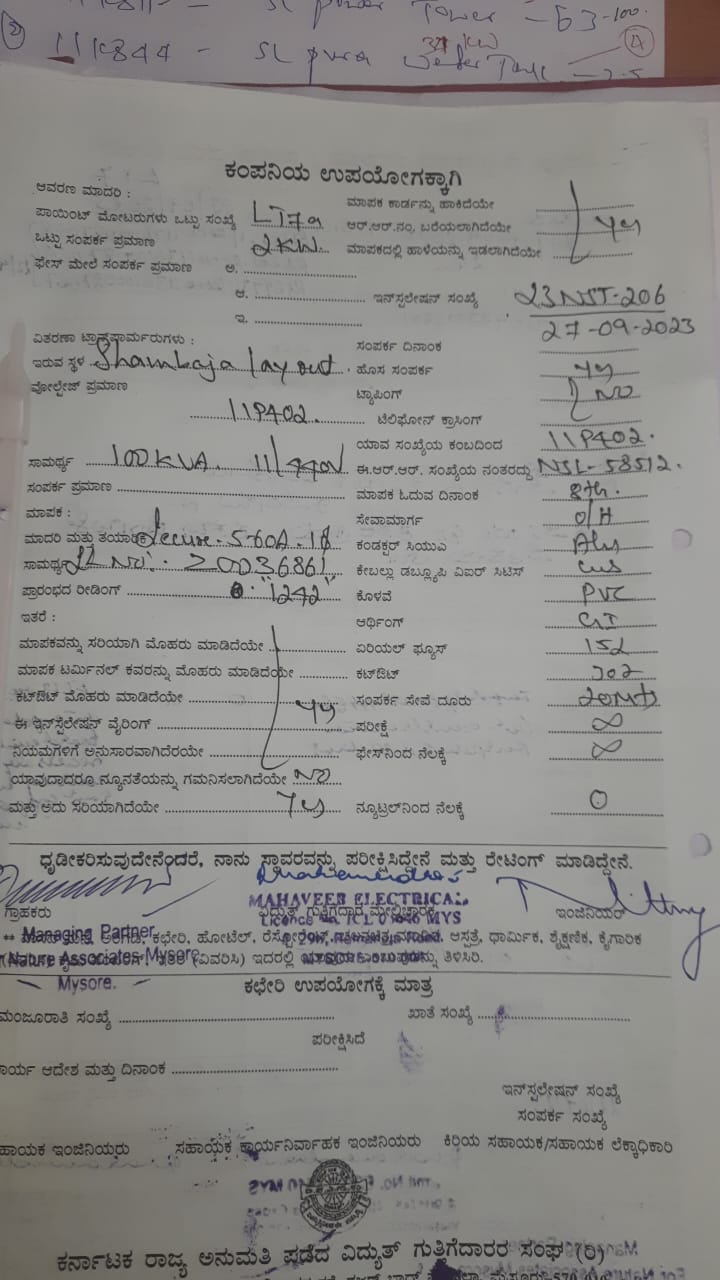 Tower - 63-100.
② 11K844 - SL pura Water Tank
37 KW ④
ಕಂಪನಿಯ ಉಪಯೋಗಕ್ಕಾಗಿ
ಆವರಣ ಮಾದರಿ : ಮಾಪಕ ಕಾರ್ಡನ್ನು ಹಾಕಿದೆಯೇ
ಪಾಯಿಂಟ್ ಮೋಟರುಗಳು ಒಟ್ಟು ಸಂಖ್ಯೆ LT7a ಆರ್.ಆರ್.ನಂ. ಬರೆಯಲಾಗಿದೆಯೇ Yes
ಒಟ್ಟು ಸಂಪರ್ಕ ಪ್ರಮಾಣ 2KW ಮಾಪಕದಲ್ಲಿ ಹಾಳೆಯನ್ನು ಇಡಲಾಗಿದೆಯೇ
ಫೇಸ್ ಮೇಲೆ ಸಂಪರ್ಕ ಪ್ರಮಾಣ ಅ.
ಆ. ಇನ್‌ಸ್ಟಲೇಷನ್ ಸಂಖ್ಯೆ 23NST-206
ಇ. 27-09-2023
ವಿತರಣಾ ಟ್ರಾನ್ಸ್‌ಫಾರ್ಮರುಗಳು : ಸಂಪರ್ಕ ದಿನಾಂಕ
ಇರುವ ಸ್ಥಳ Shambaja layout ಹೊಸ ಸಂಪರ್ಕ Yes
ವೋಲ್ಟೇಜ್ ಪ್ರಮಾಣ ಟ್ಯಾಪಿಂಗ್ NO
11P402 ಟೆಲಿಫೋನ್ ಕ್ರಾಸಿಂಗ್
ಯಾವ ಸಂಖ್ಯೆಯ ಕಂಬದಿಂದ 11P402.
ಸಾಮರ್ಥ್ಯ 100KVA. 11/440V ಈ.ಆರ್.ಆರ್. ಸಂಖ್ಯೆಯ ನಂತರದ್ದು NSL-58512.
ಸಂಪರ್ಕ ಪ್ರಮಾಣ ಮಾಪಕ ಓದುವ ದಿನಾಂಕ 8th.
ಮಾಪಕ : ಸೇವಾಮಾರ್ಗ O/H
ಮಾದರಿ ಮತ್ತು ತಯಾರಿಕೆ Secure. 5-60A-1ϕ ಕಂಡಕ್ಟರ್ ಸಿಯುಎ Alu
ಸಾಮರ್ಥ್ಯ SL No: 20036861 ಕೇಬಲ್ಲು ಡಬ್ಲ್ಯೂಪಿ ವಿಐರ್ ಸಿಟಿಸ್ Cus
ಪ್ರಾರಂಭದ ರೀಡಿಂಗ್ "1242" ಕೊಳವೆ PVC
ಇತರೆ : ಆರ್ಥಿಂಗ್ GI
ಮಾಪಕವನ್ನು ಸರಿಯಾಗಿ ಮೊಹರು ಮಾಡಿದೆಯೇ ಏರಿಯಲ್ ಫ್ಯೂಸ್ 15Ω
ಮಾಪಕ ಟರ್ಮಿನಲ್ ಕವರನ್ನು ಮೊಹರು ಮಾಡಿದೆಯೇ ಕಟ್‌ಔಟ್
ಕಟ್‌ಔಟ್ ಮೊಹರು ಮಾಡಿದೆಯೇ Yes ಸಂಪರ್ಕ ಸೇವೆ ದೂರು 20Mts
ಈ ಇನ್‌ಸ್ಟಲೇಷನ್ ವೈರಿಂಗ್ ಪರೀಕ್ಷೆ ∞
ನಿಯಮಗಳಿಗೆ ಅನುಸಾರವಾಗಿದೆರಯೇ ಫೇಸ್‌ನಿಂದ ನೆಲಕ್ಕೆ ∞
ಯಾವುದಾದರೂ ನ್ಯೂನತೆಯನ್ನು ಗಮನಿಸಲಾಗಿದೆಯೇ NO
ಮತ್ತು ಅದು ಸರಿಯಾಗಿದೆಯೇ Yes ನ್ಯೂಟ್ರಲ್‌ನಿಂದ ನೆಲಕ್ಕೆ 0
ಧೃಡೀಕರಿಸುವುದೇನೆಂದರೆ, ನಾನು ಸ್ಥಾವರವನ್ನು ಪರೀಕ್ಷಿಸಿದ್ದೇನೆ ಮತ್ತು ರೇಟಿಂಗ್ ಮಾಡಿದ್ದೇನೆ.
MAHAVEER ELECTRICAL
ಗ್ರಾಹಕರು ವಿದ್ಯುತ್ ಗುತ್ತಿಗೆದಾರ ಮೇಲ್ವಿಚಾರಕ ಇಂಜಿನಿಯರ್
Licence No. MYS
Managing Partner
ಕಛೇರಿ, ಹೋಟೆಲ್, ಆಸ್ಪತ್ರೆ, ಧಾರ್ಮಿಕ, ಶೈಕ್ಷಣಿಕ, ಕೈಗಾರಿಕ
Nature Associates Mysore (ವಿವರಿಸಿ) ಇದರಲ್ಲಿ ತಿಳಿಸಿರಿ.
Mysore.
ಕಛೇರಿ ಉಪಯೋಗಕ್ಕೆ ಮಾತ್ರ
ಮಂಜೂರಾತಿ ಸಂಖ್ಯೆ ಖಾತೆ ಸಂಖ್ಯೆ
ಪರೀಕ್ಷಿಸಿದೆ
ಾರ್ಯ ಆದೇಶ ಮತ್ತು ದಿನಾಂಕ
ಇನ್‌ಸ್ಟಲೇಷನ್ ಸಂಖ್ಯೆ
ಸಂಪರ್ಕ ಸಂಖ್ಯೆ
ಹಾಯಕ ಇಂಜಿನಿಯರು ಸಹಾಯಕ ಕಾರ್ಯನಿರ್ವಾಹಕ ಇಂಜಿನಿಯರು ಕಿರಿಯ ಸಹಾಯಕ/ಸಹಾಯಕ ಲೆಕ್ಕಾಧಿಕಾರಿ
ಕರ್ನಾಟಕ ರಾಜ್ಯ ಅನುಮತಿ ಪಡೆದ ವಿದ್ಯುತ್ ಗುತ್ತಿಗೆದಾರರ ಸಂಘ (ರಿ)